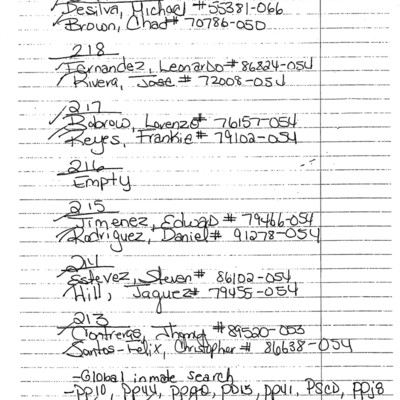 Desilva, Michael #55381-066
Brown, Chad# 70786-050
218
Fernandez, Leonardo# 86824-054
Rivera, Jose# 72008-054
217
Bobrow, Lorenzo# 76157-054
Keyes, Frankie# 79102-054
216
Empty
215
Jimenez, Edwad # 79466-054
Rodriguez, Daniel# 91278-054
214
Estevez, Steven# 86102-054
Hill, Jaquez# 79455-054
213
Contreras, #89520-053
Santos-Felix, Christopher# 86638-054
-Global inmate search
-PPJ0, PP44, PPG0, PP41, PSCD, PPJ8